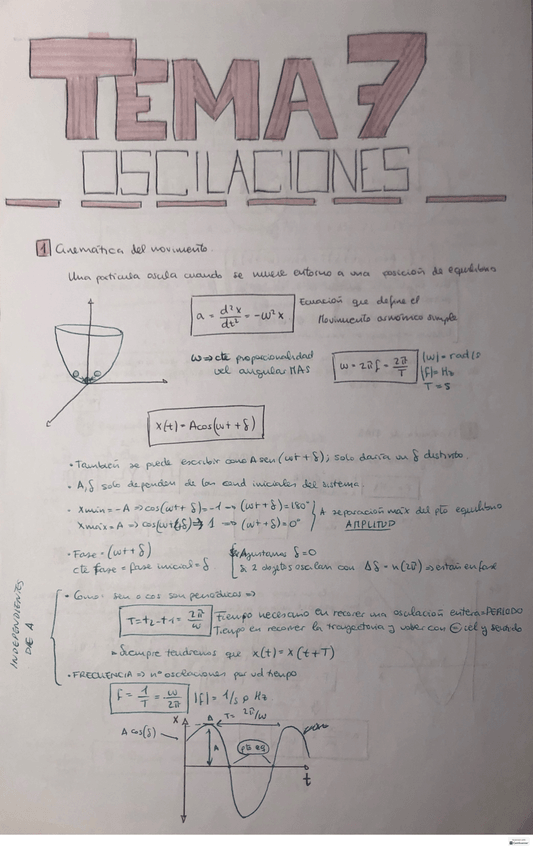 TEMA 7
OSCILACIONES
1 Cinemática del movimiento.
Una partícula oscila cuando se mueve entorno a una posición de equilibrio
a = d²x/dt² = -ω²x
Ecuación que define el
Movimiento armónico simple
ω => cte proporcionalidad
vel angular MAS
ω = 2πf = 2π/T
|ω| = rad/s
|f| = Hz
T = s
x(t) = A cos(ωt + δ)
• También se puede escribir como A sen(ωt + δ); solo daría un δ distinto.
• A, δ solo dependen de las cond iniciales del sistema.
• xmin = -A => cos(ωt + δ) = -1 => (ωt + δ) = 180°
xmáx = A => cos(ωt + δ) => 1 => (ωt + δ) = 0°
A separación máx del pto equilibrio
AMPLITUD
• Fase = (ωt + δ)
cte fase = fase inicial = δ
Ajustamos δ = 0
Si 2 objetos oscilan con Δδ = n(2π) => están en fase
INDEPENDIENTES
DE A
• Como sen o cos son periódicos =>
T = t2 - t1 = 2π/ω
Tiempo necesario en recorrer una oscilación entera = PERIODO
Tiempo en recorrer la trayectoria y volver con = vel y sentido
Siempre tendremos que x(t) = x(t+T)
• FRECUENCIA => nº oscilaciones por ud tiempo
f = 1/T = ω/2π
|f| = 1/s o Hz
x
A
T = 2π/ω
A cos(δ)
A
pto eq
t